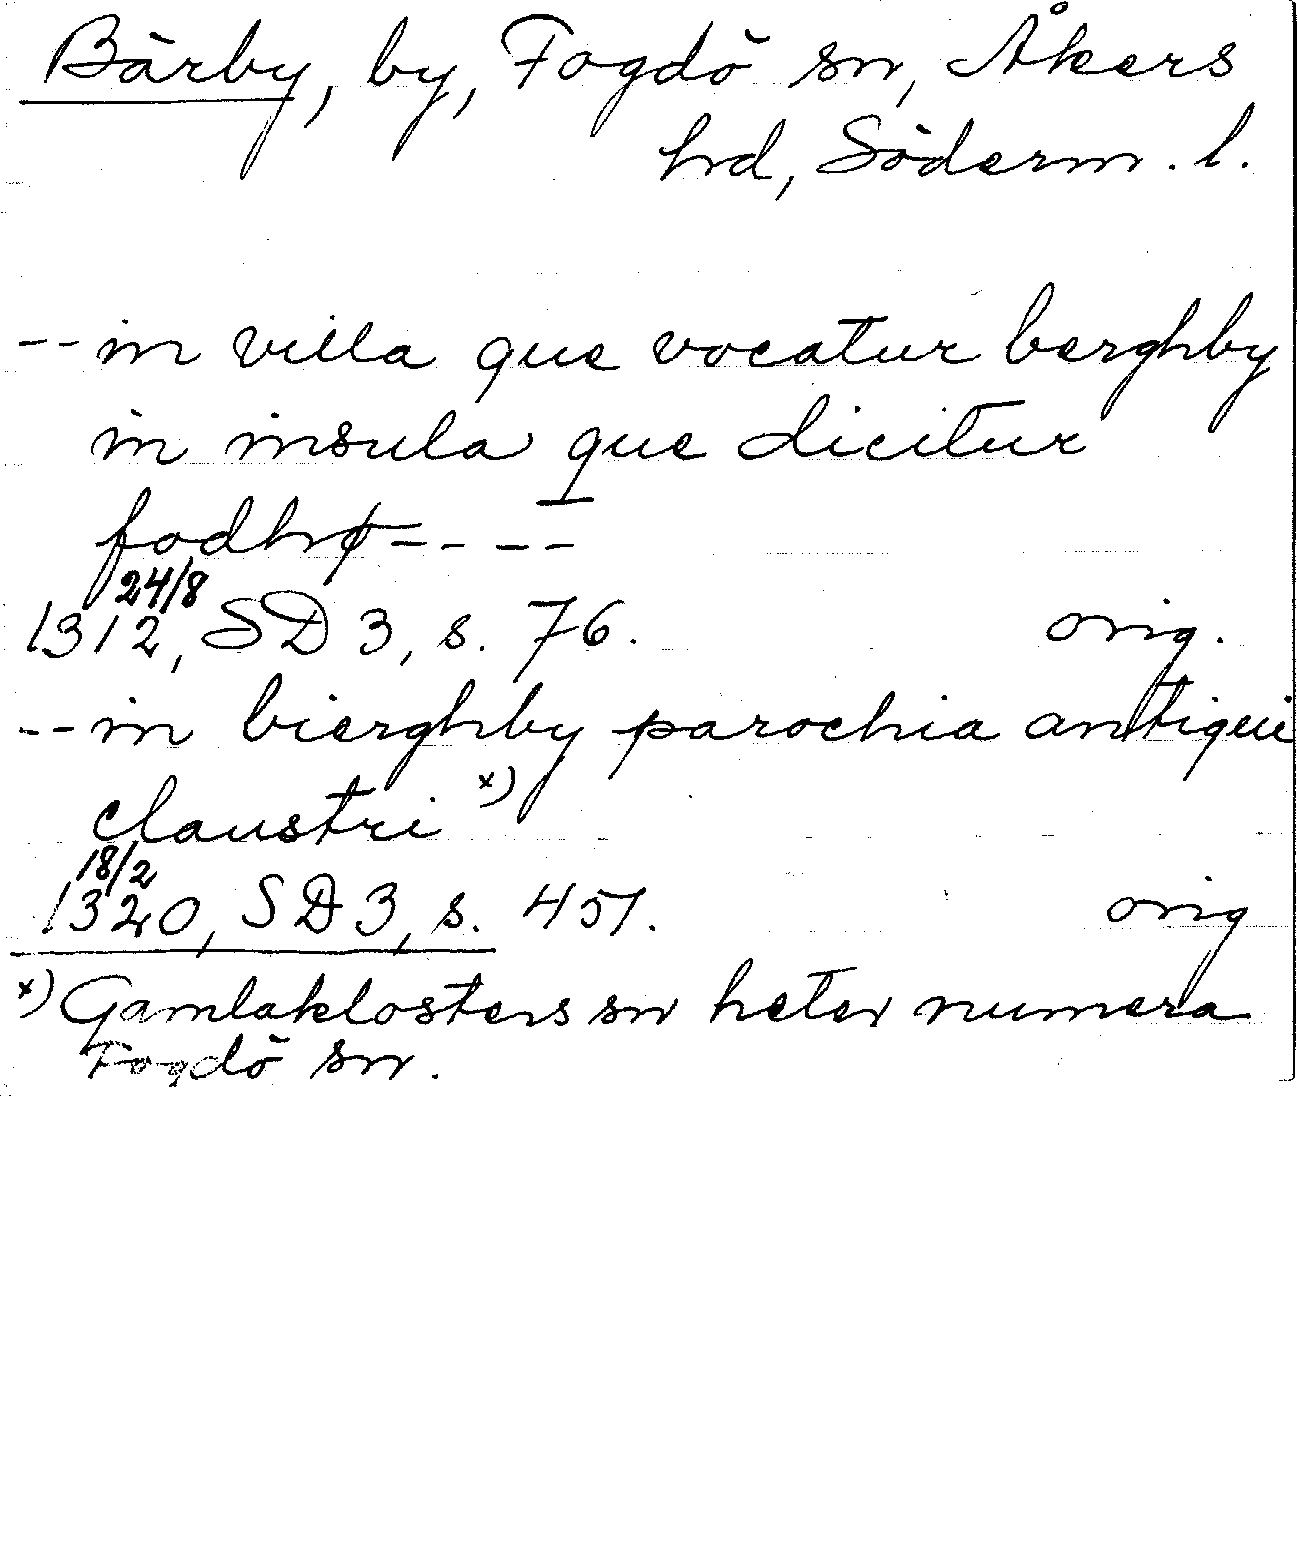 Bärby, by, Fogdö sn, Åkers
hd, Söderm. l.
-- in villa que vocatur berghby
in insula que dicitur
fodhrø - - - -
24/8
1312, SD 3, s. 76. orig.
-- in bierghby parochia antiqui
claustri x)
18/2
1320, SD 3, s. 451. orig
x) Gamlaklosters sn heter numera
Fogdö sn.